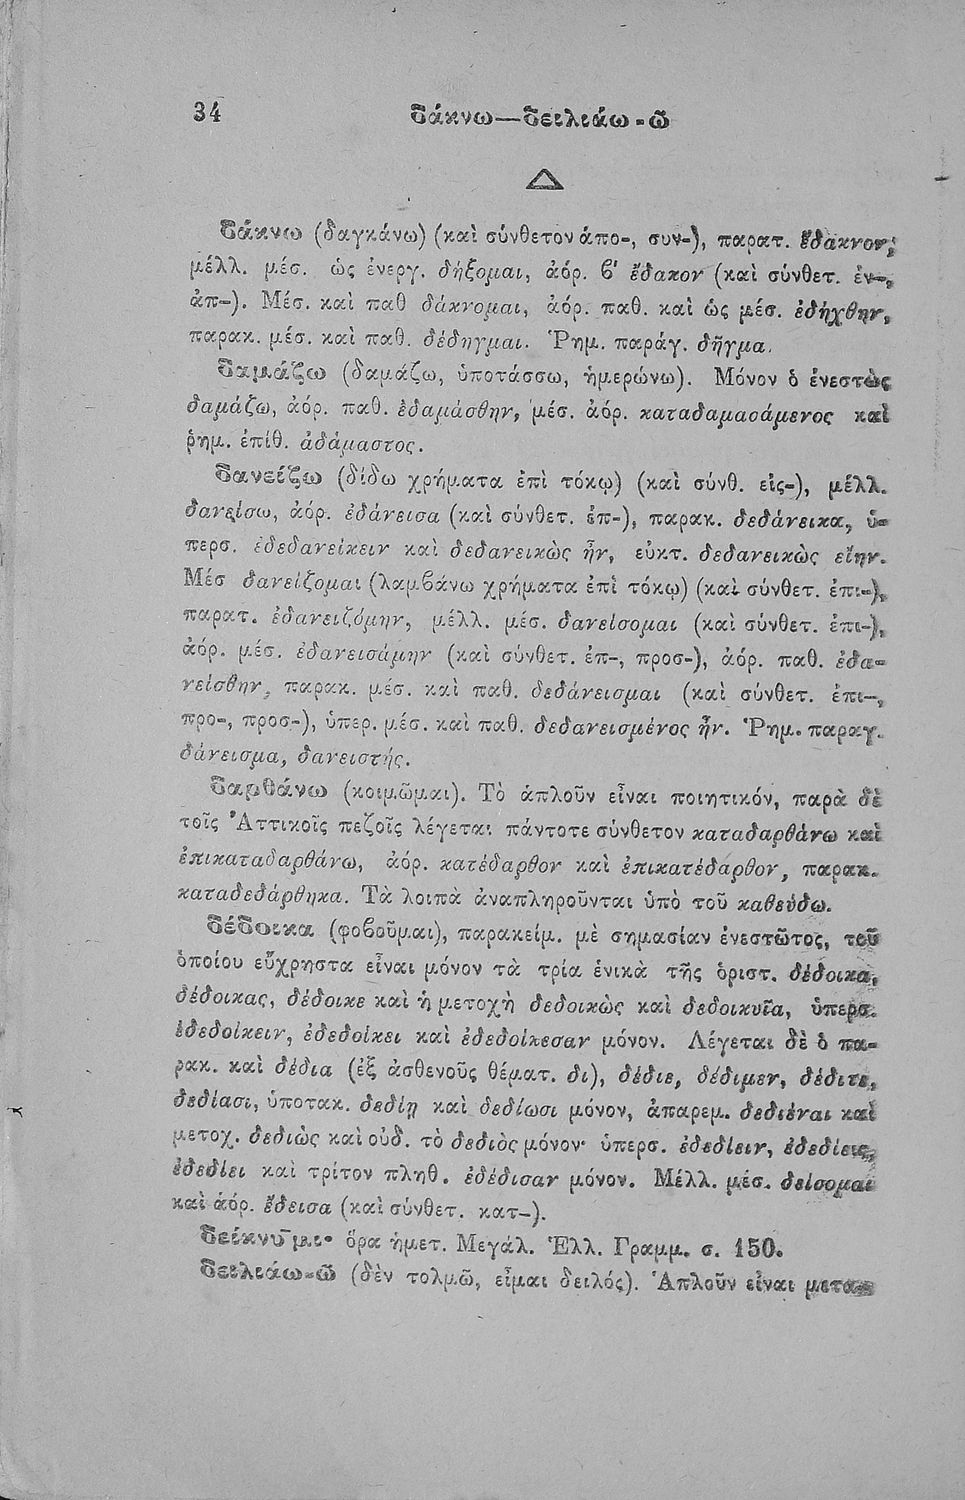 34 δάκνω—δειλιάω-ῶ
Δ
δάκνω (δαγκάνω) (καὶ σύνθετον ἀπο-, συν-), παρατ. ἔδακνον,
μέλλ. μέσ. ὡς ἐνεργ. δήξομαι, ἀόρ. β' ἔδακον (καὶ σύνθετ. ἐν-,
ἀπ-). Μέσ. καὶ παθ δάκνομαι, ἀόρ. παθ. καὶ ὡς μέσ. ἐδήχθην,
παρακ. μέσ. καὶ παθ. δέδηγμαι. Ῥημ. παράγ. δῆγμα.
δαμάζω (δαμάζω, ὑποτάσσω, ἡμερώνω). Μόνον ὁ ἐνεστὼς
δαμάζω, ἀόρ. παθ. ἐδαμάσθην, μέσ. ἀόρ. καταδαμασάμενος καὶ
ῥημ. ἐπίθ. ἀδάμαστος.
δανείζω (δίδω χρήματα ἐπὶ τόκῳ) (καὶ σύνθ. εἰς-), μέλλ.
δανείσω, ἀόρ. ἐδάνεισα (καὶ σύνθετ. ἐπ-), παρακ. δεδάνεικα, ὑ-
περσ. ἐδεδανείκειν καὶ δεδανεικὼς ἦν, εὐκτ. δεδανεικὼς εἴην.
Μέσ δανείζομαι (λαμβάνω χρήματα ἐπὶ τόκῳ) (καὶ σύνθετ. ἐπι-),
παρατ. ἐδανειζόμην, μέλλ. μέσ. δανείσομαι (καὶ σύνθετ. ἐπι-),
ἀόρ. μέσ. ἐδανεισάμην (καὶ σύνθετ. ἐπ-, προσ-), ἀόρ. παθ. ἐδα-
νείσθην, παρακ. μέσ. καὶ παθ. δεδάνεισμαι (καὶ σύνθετ. ἐπι-,
προ-, προσ-), ὑπερ. μέσ. καὶ παθ. δεδανεισμένος ἦν. Ῥημ. παραγ.
δάνεισμα, δανειστής.
δαρθάνω (κοιμῶμαι). Τὸ ἁπλοῦν εἶναι ποιητικόν, παρὰ δὲ
τοῖς Ἀττικοῖς πεζοῖς λέγεται πάντοτε σύνθετον καταδαρθάνω καὶ
ἐπικαταδαρθάνω, ἀόρ. κατέδαρθον καὶ ἐπικατέδαρθον, παρακ.
καταδεδάρθηκα. Τὰ λοιπὰ ἀναπληροῦνται ὑπὸ τοῦ καθεύδω.
δέδοικα (φοβοῦμαι), παρακείμ. μὲ σημασίαν ἐνεστῶτος, τοῦ
ὁποίου εὔχρηστα εἶναι μόνον τὰ τρία ἑνικὰ τῆς ὁριστ. δέδοικα,
δέδοικας, δέδοικε καὶ ἡ μετοχὴ δεδοικὼς καὶ δεδοικυῖα, ὑπερσ.
ἐδεδοίκειν, ἐδεδοίκει καὶ ἐδεδοίκεσαν μόνον. Λέγεται δὲ ὁ πα-
ρακ. καὶ δέδια (ἐξ ἀσθενοῦς θέματ. δι), δέδιε, δέδιμεν, δέδιτε,
δεδίασι, ὑποτακ. δεδίῃ καὶ δεδίωσι μόνον, ἀπαρεμ. δεδιέναι καὶ
μετοχ. δεδιὼς καὶ οὐδ. τὸ δεδιὸς μόνον· ὑπερσ. ἐδεδίειν, ἐδεδίεις,
ἐδεδίει καὶ τρίτον πληθ. ἐδέδισαν μόνον. Μέλλ. μέσ. δείσομαι
καὶ ἀόρ. ἔδεισα (καὶ σύνθετ. κατ-).
δείκνῡμι· ὅρα ἡμετ. Μεγάλ. Ἑλλ. Γραμμ. σ. 150.
δειλιάω-ῶ (δὲν τολμῶ, εἶμαι δειλός). Ἁπλοῦν εἶναι μετα-